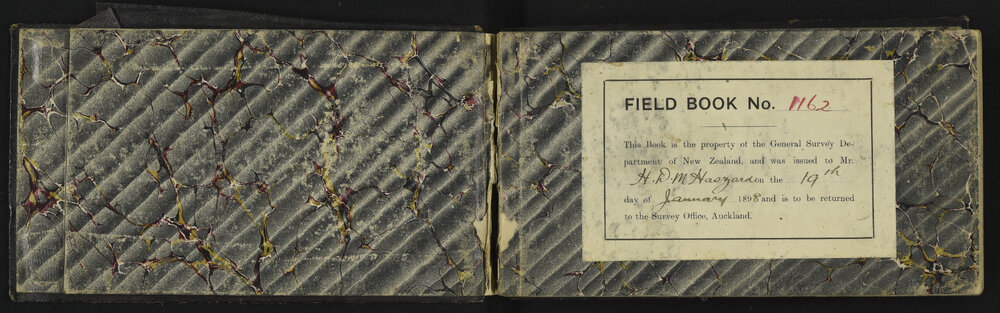 FIELD BOOK No. 1162
This Book is the property of the General Survey De-
partment of New Zealand, and was issued to Mr.
H. D. M Haszard on the 19th
day of January 1898 and is to be returned
to the Survey Office, Auckland.